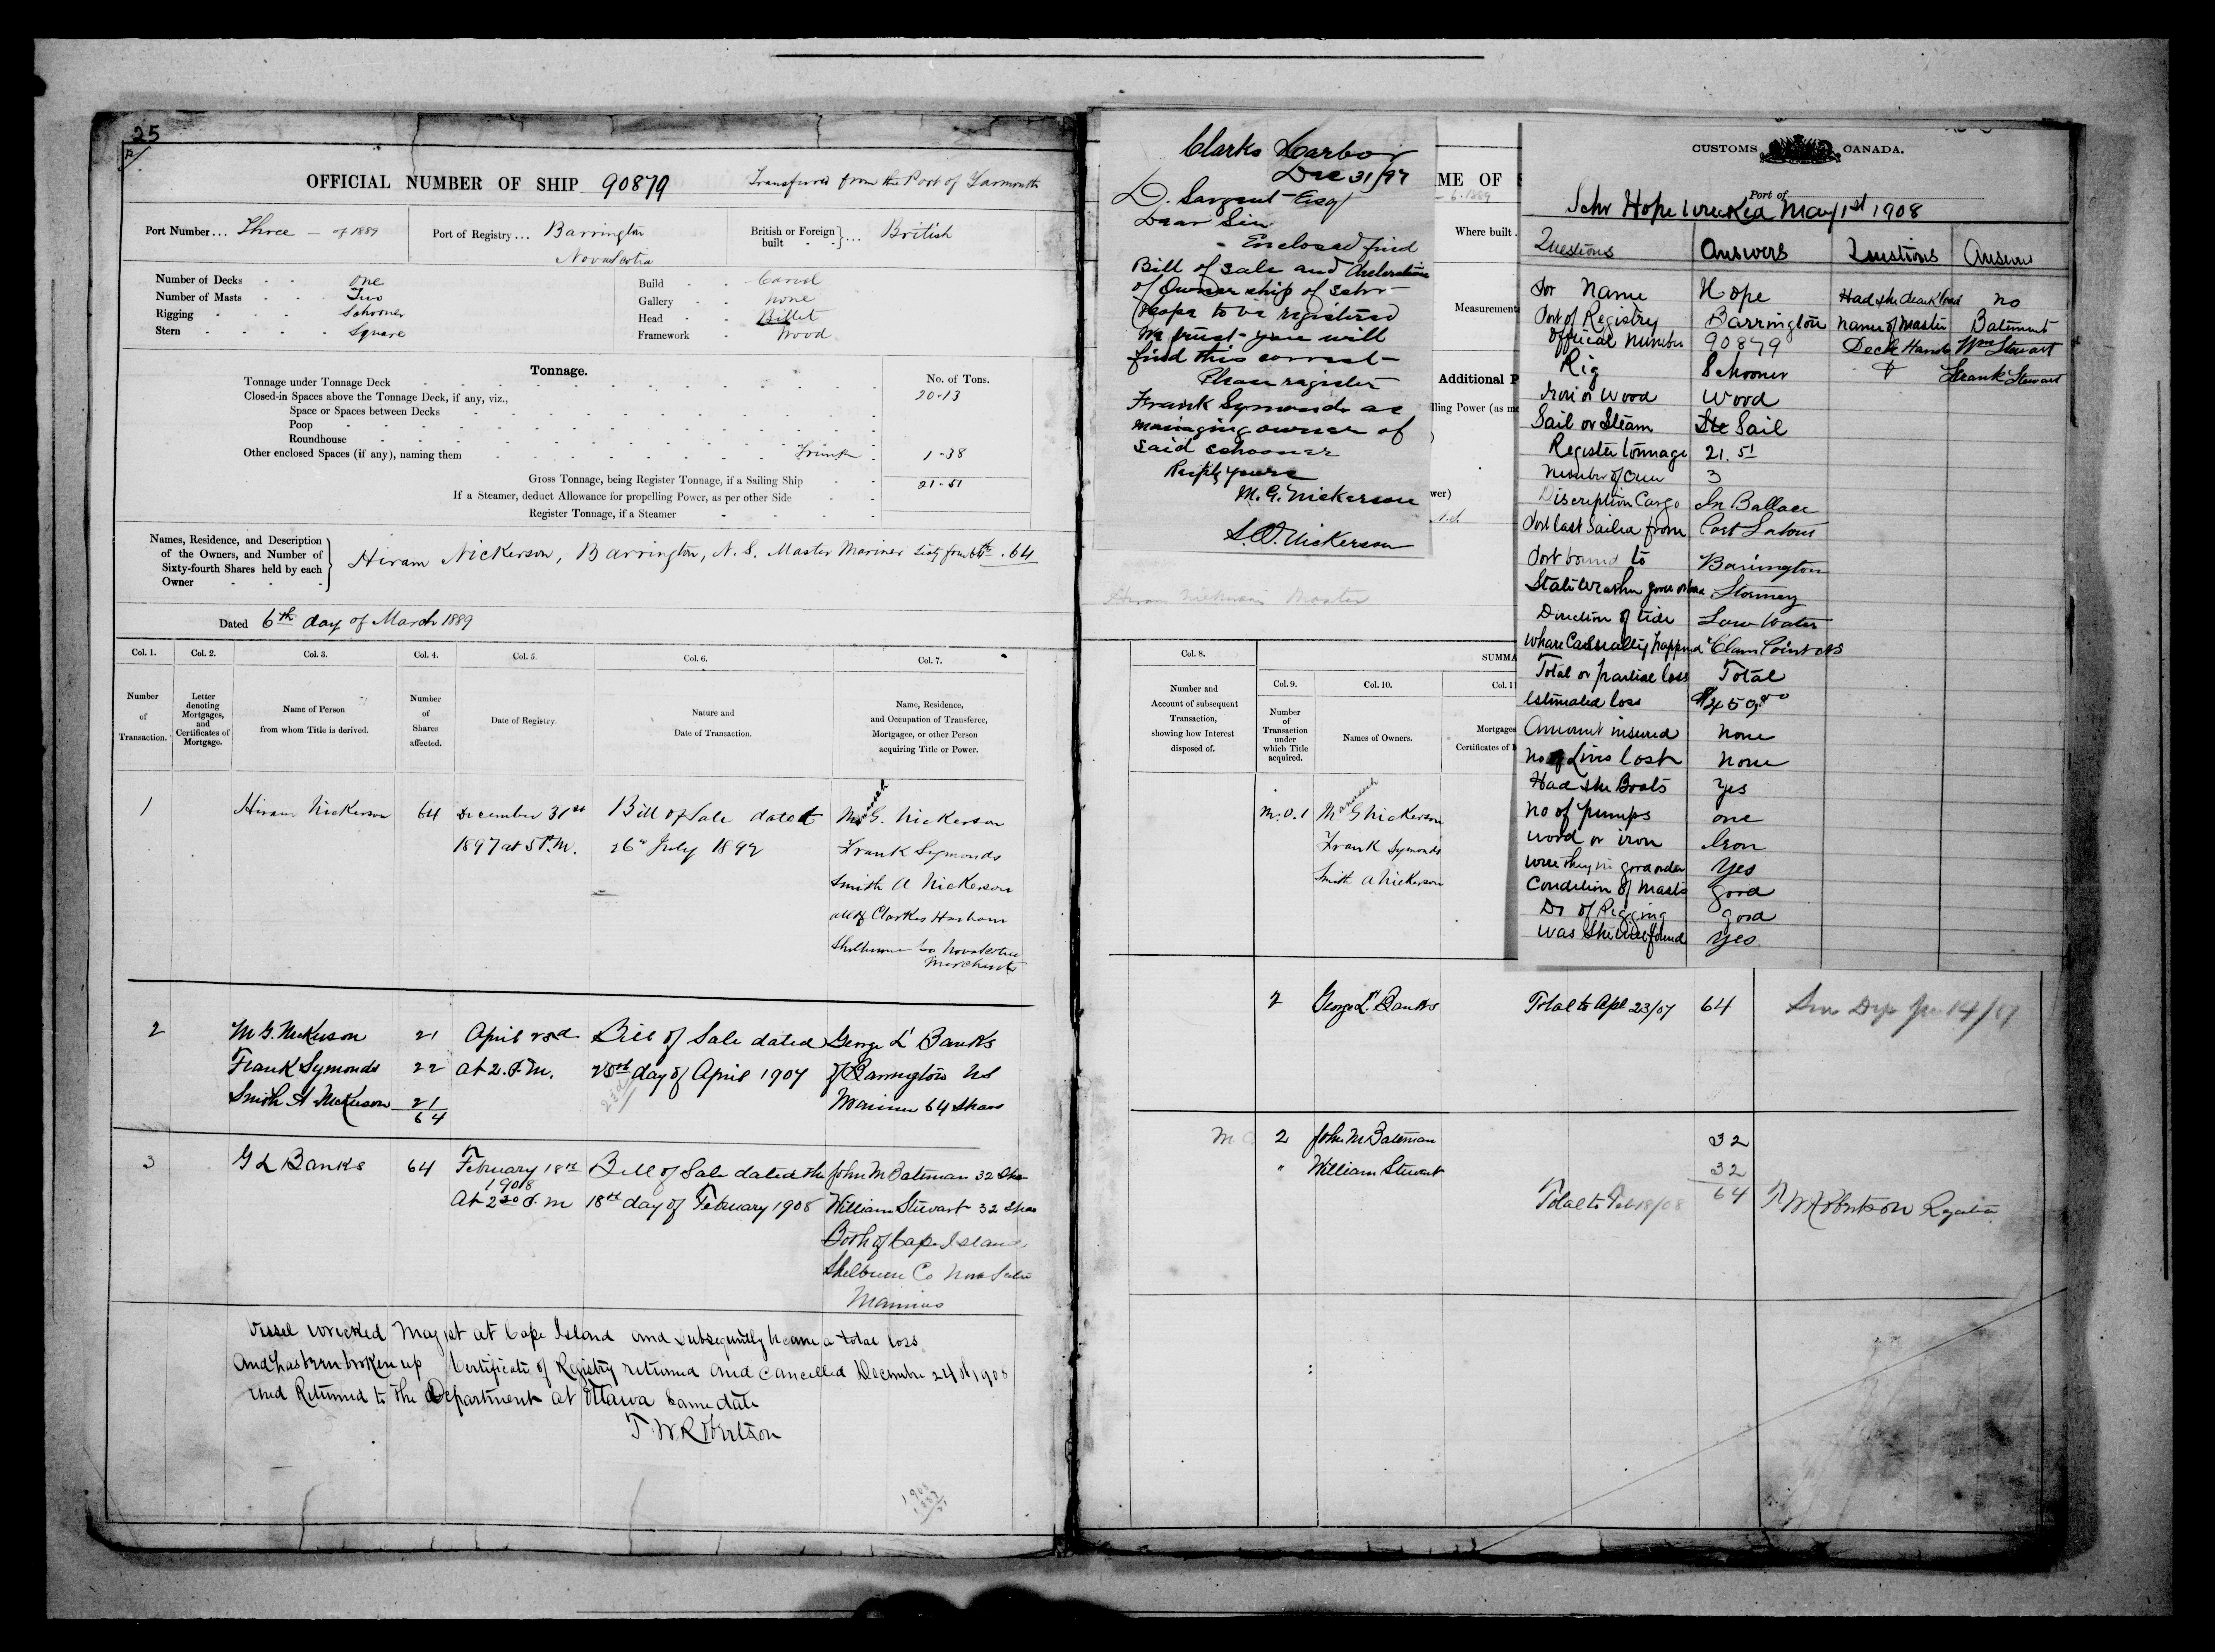 25
OFFICIAL NUMBER OF SHIP 90879 Transferred from the Port of Yarmouth
Port Number... Three — of 1889 Port of Registry... Barrington Nova Scotia British or Foreign built ... British
Number of Decks One Build Carvel
Number of Masts Two Gallery none
Rigging Schooner Head Billet
Stern Square Framework Wood
Tonnage.
No. of Tons.
Tonnage under Tonnage Deck 20.13
Closed-in Spaces above the Tonnage Deck, if any, viz.,
Space or Spaces between Decks
Poop
Roundhouse
Other enclosed Spaces (if any), naming them Trunk 1.38
Gross Tonnage, being Register Tonnage, if a Sailing Ship 21.51
If a Steamer, deduct Allowance for propelling Power, as per other Side
Register Tonnage, if a Steamer
Names, Residence, and Description
of the Owners, and Number of
Sixty-fourth Shares held by each
Owner
Hiram Nickerson, Barrington, N.S. Master Mariner Sixty four 64th . 64
Dated 6th day of March 1889
Col. 1. Col. 2. Col. 3. Col. 4. Col. 5. Col. 6. Col. 7.
Number of Transaction.
Letter denoting Mortgages, and Certificates of Mortgage.
Name of Person from whom Title is derived.
Number of Shares affected.
Date of Registry.
Nature and Date of Transaction.
Name, Residence, and Occupation of Transferee, Mortgagee, or other Person acquiring Title or Power.
1 Hiram Nickerson 64 December 31st Bill of Sale dated M G. Nickerson
1897 at 5 P.M. 26th July 1897 Frank Symonds
Smith A Nickerson
all of Clarkes Harbour
Shelburne Co Nova Scotia
Merchants
2 M G. Nickerson 21 April 23rd Bill of Sale dated George L Banks
Frank Symonds 22 at 2. P.M. 23rd day of April 1907 of Barrington NS
Smith A Nickerson 21 Mariner 64 Shares
64
3 G L Banks 64 February 18th Bill of Sale dated the John M Bateman 32 Shs
1908
At 2 30 P.M 18th day of February 1908 William Stewart 32 Shares
Both of Cape Island
Shelburne Co Nova Scotia
Mariners
Vessel wrecked May 1st at Cape Island and subsequently became a total loss
And has been broken up Certificate of Registry returned and cancelled December 24th 1908
and Returned to the Department at Ottawa same date
T. W. Robertson
Clarks Harbor
Dec 31/97
D. Sargent Esq
Dear Sir
Enclosed find
Bill of sale and decleration
of Owner ship of schr
Hope to be registered
We trust you will
find this correct
Please register
Frank Symonds as
managing owner of
said schooner
Respty yours
M. G. Nickerson
S. A. Nickerson
ME OF
6.1889
Where built .
Measurements
Additional P
lling Power (as me
wer)
Hiram Nickerson Master
Col. 8. SUMMA
Col. 9. Col. 10. Col. 11
Number and Account of subsequent Transaction, showing how Interest disposed of.
Number of Transaction under which Title acquired.
Names of Owners.
Mortgages
Certificates of M
M.O.1 M G Nickerson
Frank Symonds
Smith A Nickerson
2 George L. Banks Total to Apl 23/07 64
2 John M Bateman 32
" William Stewart 32
Total to Feb 18/08 64 T W Robertson Registrar
CUSTOMS CANADA.
Port of
Schr Hope Wrecked May 1st 1908
Questions Answers Questions Answers
for Name Hope Had she deck load no
Port of Registry Barrington name of master Bateman
Official number 90879 Deck Hands Wm Stewart
Rig Schooner Frank Stewart
Iron or Wood Wood
Sail or Steam Ste Sail
Register tonnage 21.51
Number of Crew 3
Discription Cargo In Ballace
Port last Sailed from Port Latour
Port bound to Barrington
Stormey
Direction of tide Low Water
Where Casseualty happend Clam Point NS
Total or partial loss Total
Estimated loss $450.00
Amount insured none
No of Lives lost none
Had she Boats Yes
No of pumps one
wood or iron Iron
were they in good order Yes
Condition of masts good
Do of Rigging good
was she well found yes